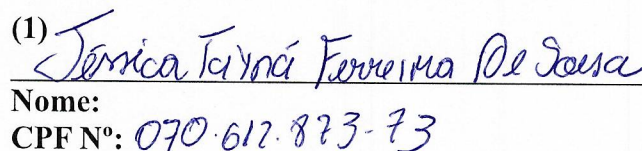 (1)
Jéssica Tayná Ferreira De Sousa
Nome:
CPF Nº: 070.612.873-73